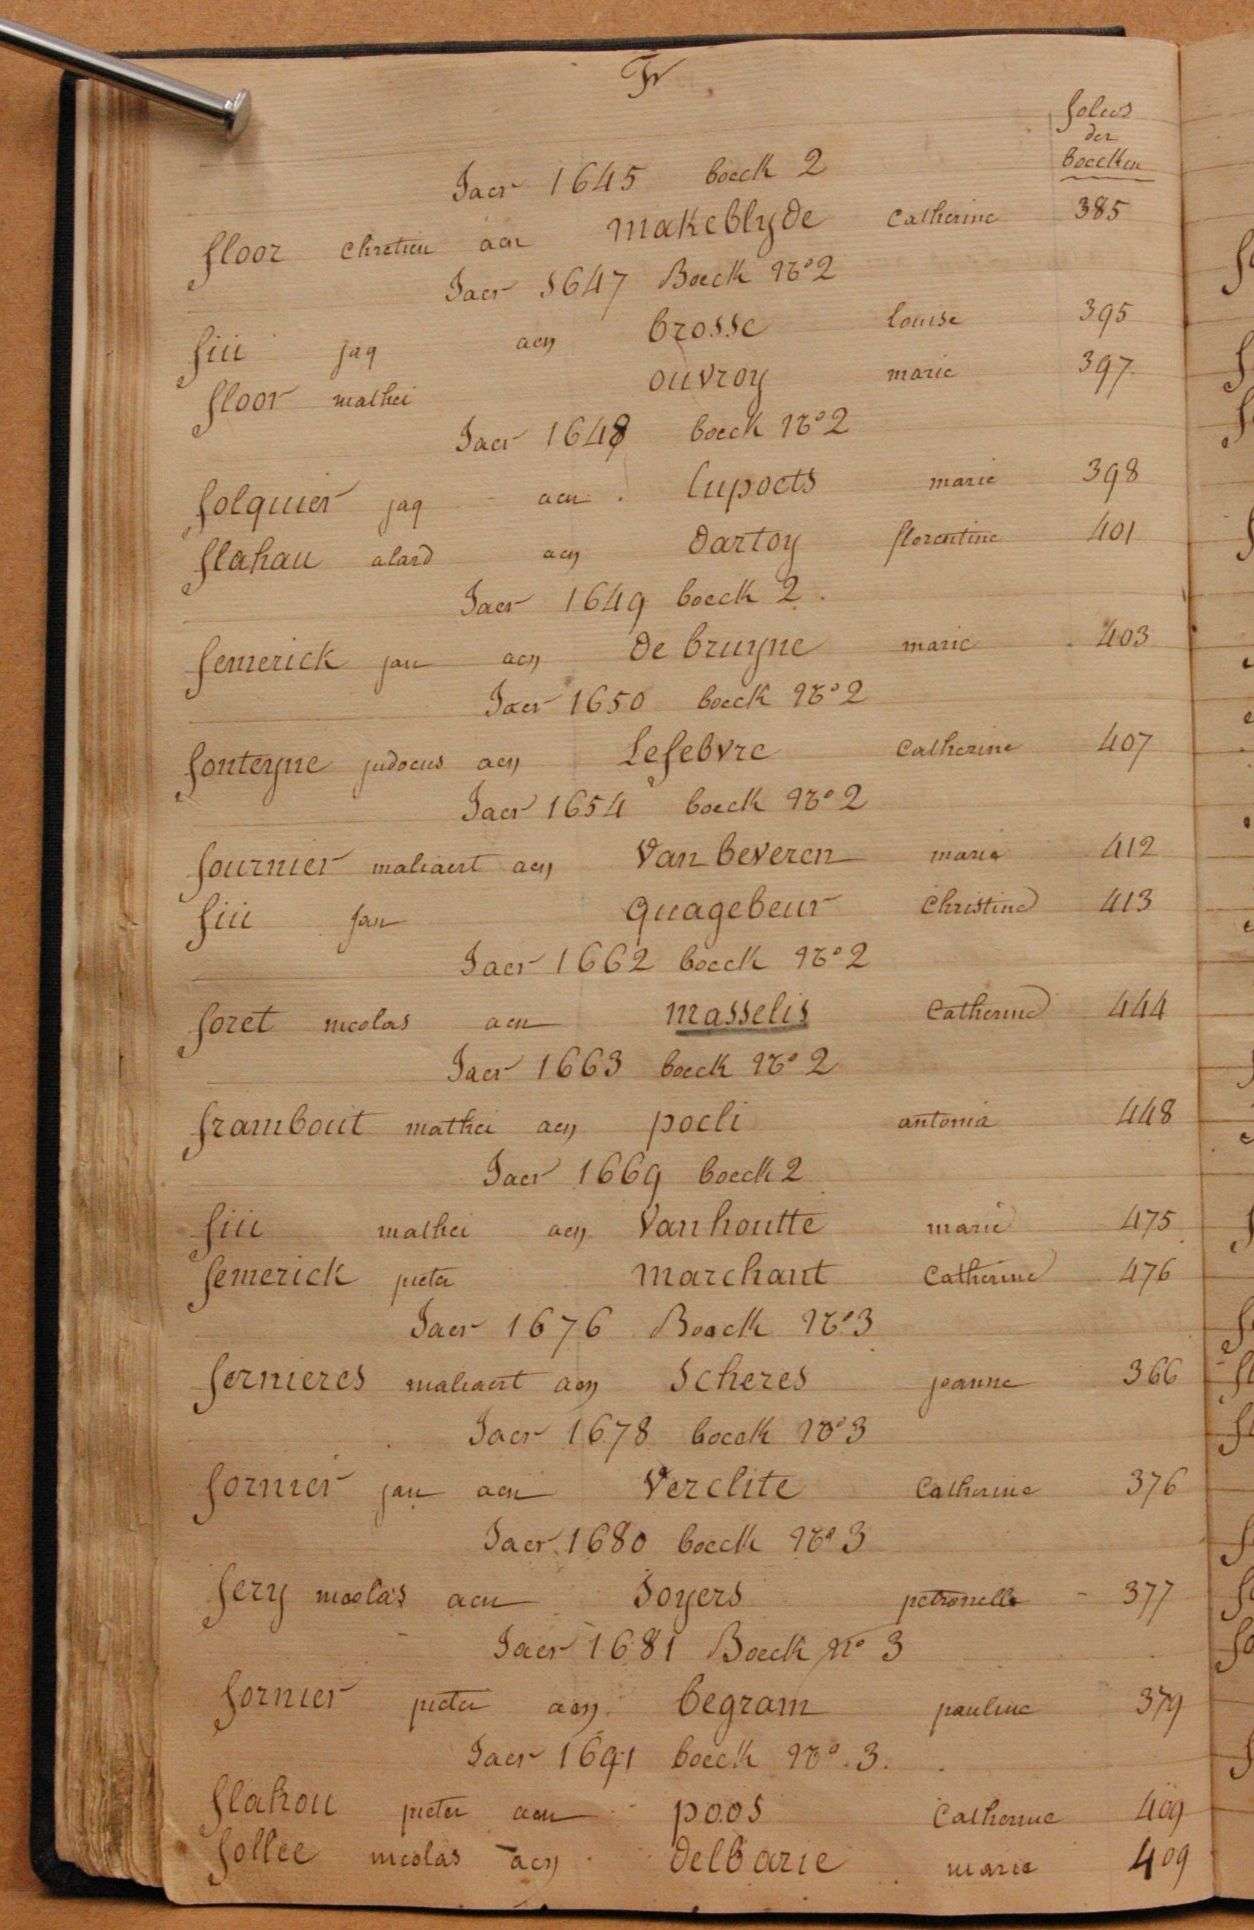 F
folios
der
boecken
Jaer 1645 boeck 2
floor chretien aen makeblyde Catherine 385
Jaer 1647 Boeck No 2
fiii jaq aen brosse louise 395
floor mathei ouvroy marie 397
Jaer 1648 boeck No 2
folquier jaq aen lupoets marie 398
flahau alard aen dartoy florentine 401
Jaer 1649 boeck 2.
femerick jan aen de bruyne marie 403
Jaer 1650 boeck No 2
fonteyne judocus aen Lefebvre Catherine 407
Jaer 1654 boeck No 2
fournier maliaert aen Van beveren marie 412
fiii jan quagebeur Christine 413
Jaer 1662 boeck No 2
foret nicolas aen masselis Catherine 444
Jaer 1663 boeck No 2
frambout mathei aen poeli antonia 448
Jaer 1669 boeck 2
fiii mathei aen Vanhoutte marie 475
femerick pieter marchant Catherine 476
Jaer 1676 Boeck No 3
fernieres maliaert aen Scheres jeanne 366
Jaer 1678 boeck No 3
fornier jan aen Verclite Catherine 376
Jaer 1680 boeck No 3
fery nicolas aen Soyers petronelle 377
Jaer 1681 Boeck No 3
fornier pieter aen begram pauline 379
Jaer 1691 boeck No. 3.
flahou pieter aen poos Catherine 409
follee nicolas aen delbarie marie 409